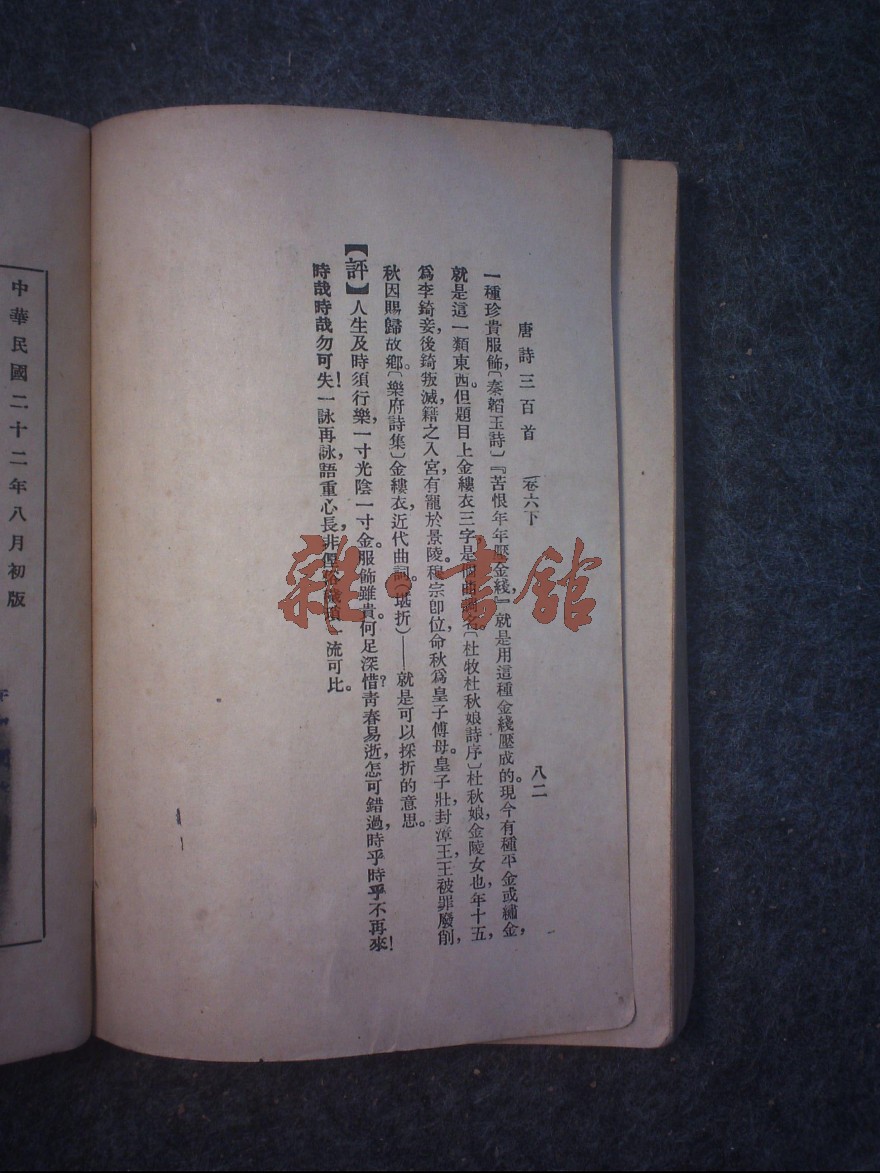 唐詩三百首 (卷六下 八二
一種珍貴服飾,〔秦韜玉詩〕『苦恨年年壓金綫,』就是用這種金綫壓成的。現今有種平金或繡金,
就是這一類東西。但題目上金縷衣三字是個曲調名。〔杜牧杜秋娘詩序〕杜秋娘,金陵女也,年十五,
爲李錡妾,後錡叛滅,籍之入宮,有寵於景陵。穆宗卽位,命秋爲皇子傅母。皇子壯,封漳王,王被罪廢削,
秋因賜歸故鄉。〔樂府詩集〕金縷衣,近代曲詞。(堪折)——就是可以採折的意思。
【評】人生及時須行樂,一寸光陰一寸金。服飾雖貴,何足深惜?青春易逝,怎可錯過,時乎時乎不再來!
時哉時哉勿可失!一詠再詠,語重心長,非一流可比。
中華民國二十二年八月初版
雜·書館